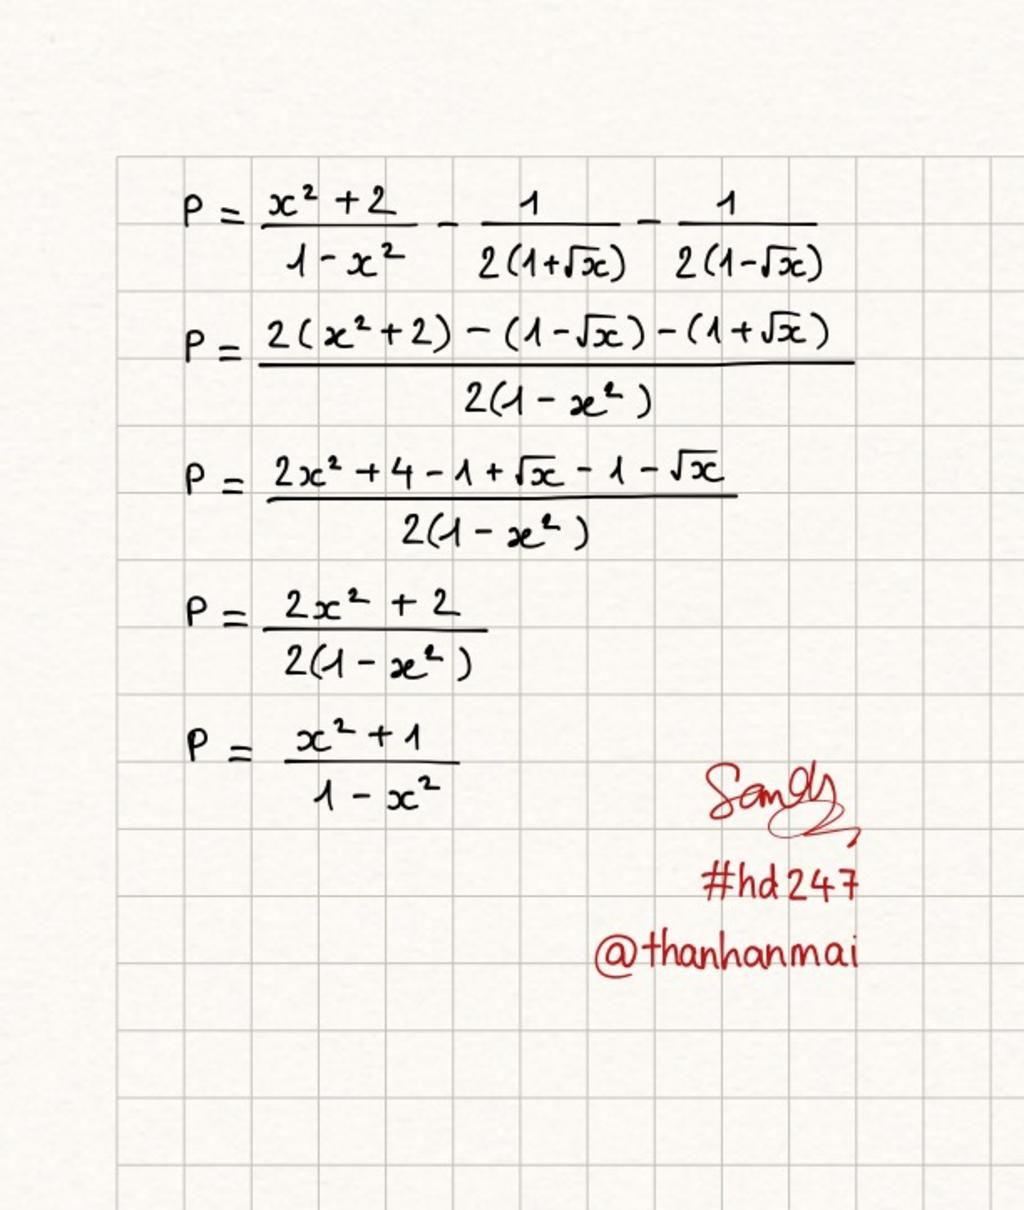 P = (x² + 2)/(1 - x²) - 1/(2(1+√x)) - 1/(2(1-√x))
P = (2(x² + 2) - (1-√x) - (1+√x))/(2(1 - x²))
P = (2x² + 4 - 1 + √x - 1 - √x)/(2(1 - x²))
P = (2x² + 2)/(2(1 - x²))
P = (x² + 1)/(1 - x²)
Sandy
#hd247
@thanhanmai